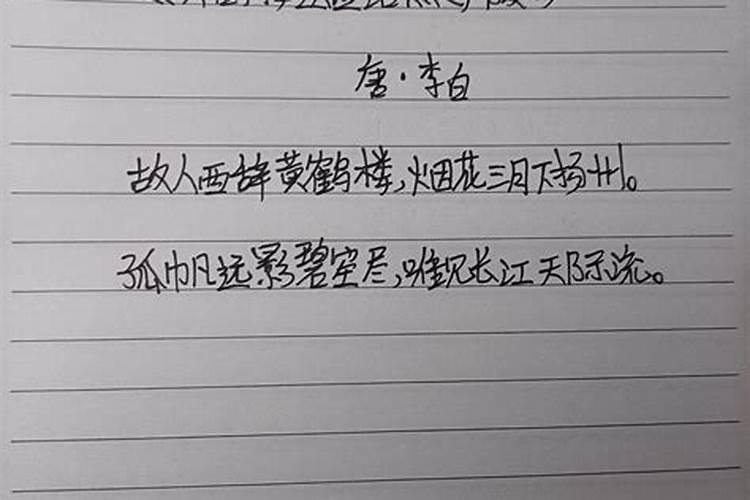 唐·李白
故人西辞黄鹤楼,烟花三月下扬州。
孤帆远影碧空尽,唯见长江天际流。